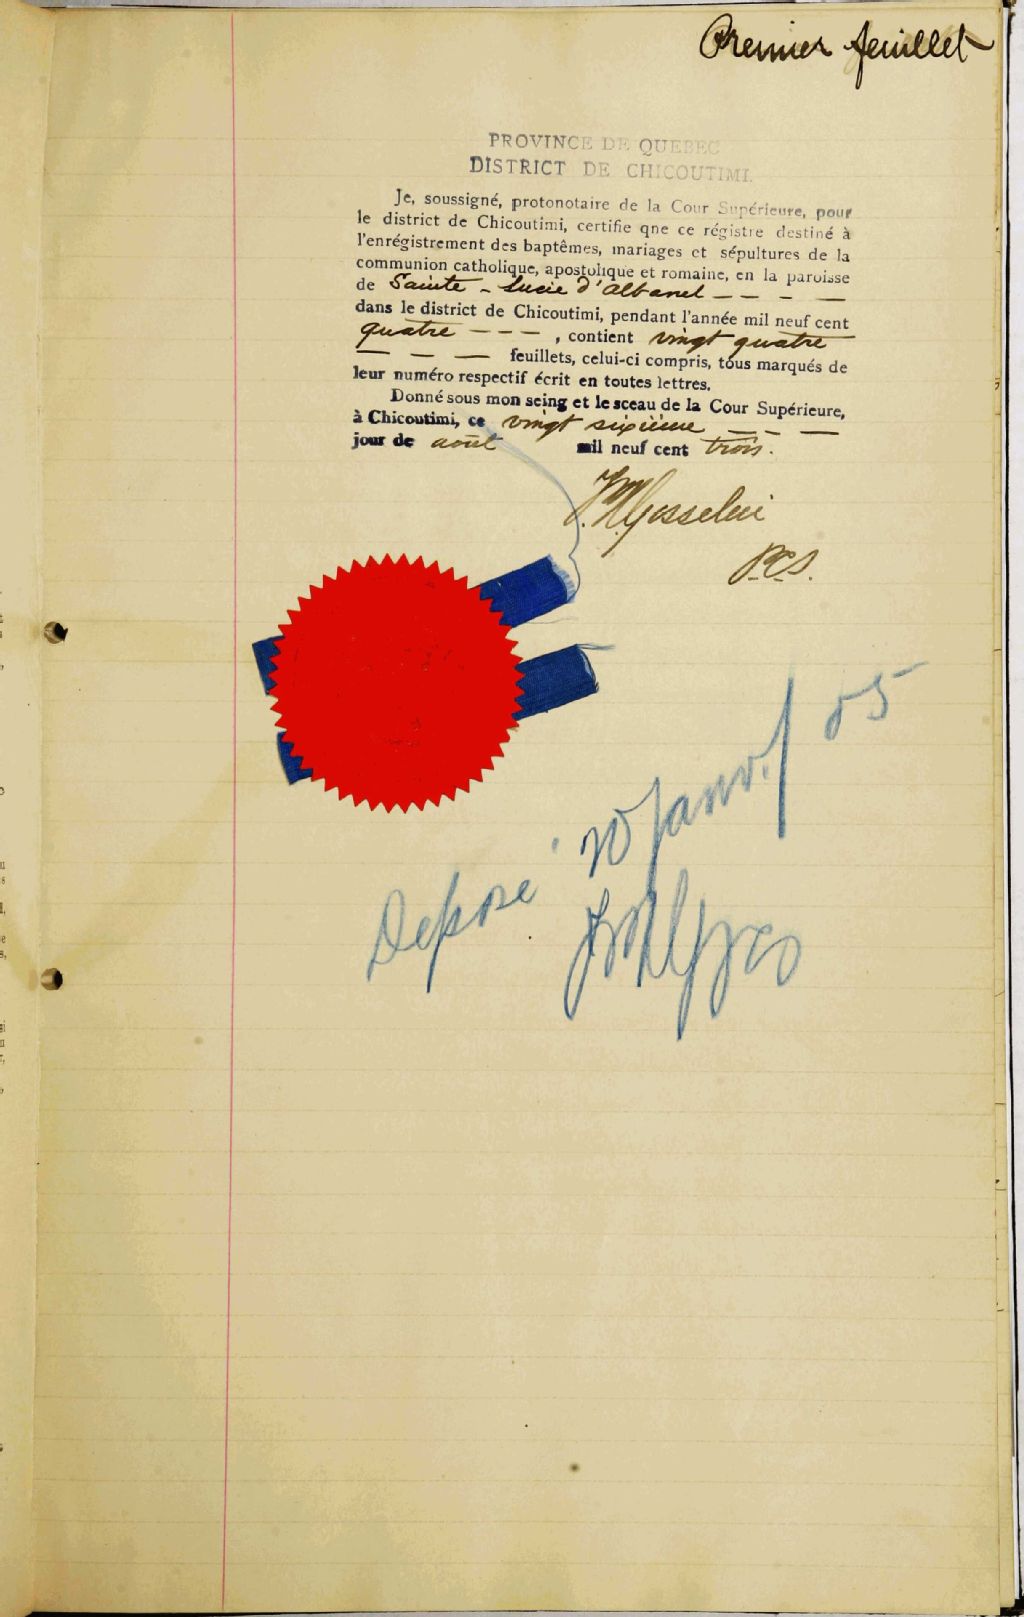 Premier feuillet
PROVINCE DE QUEBEC
DISTRICT DE CHICOUTIMI.
Je, soussigné, protonotaire de la Cour Supérieure, pour
le district de Chicoutimi, certifie qne ce régistre destiné à
l'enrégistrement des baptêmes, mariages et sépultures de la
communion catholique, apostolique et romaine, en la paroisse
de Sainte - Lucie d'Albanel — — - —
dans le district de Chicoutimi, pendant l'année mil neuf cent
quatre — — — , contient vingt quatre
— — — feuillets, celui-ci compris, tous marqués de
leur numéro respectif écrit en toutes lettres.
Donné sous mon seing et le sceau de la Cour Supérieure,
à Chicoutimi, ce vingt sixième — — —
jour de août mil neuf cent trois.
Gosselin
P.C.S.
Déposé 20 janv./05